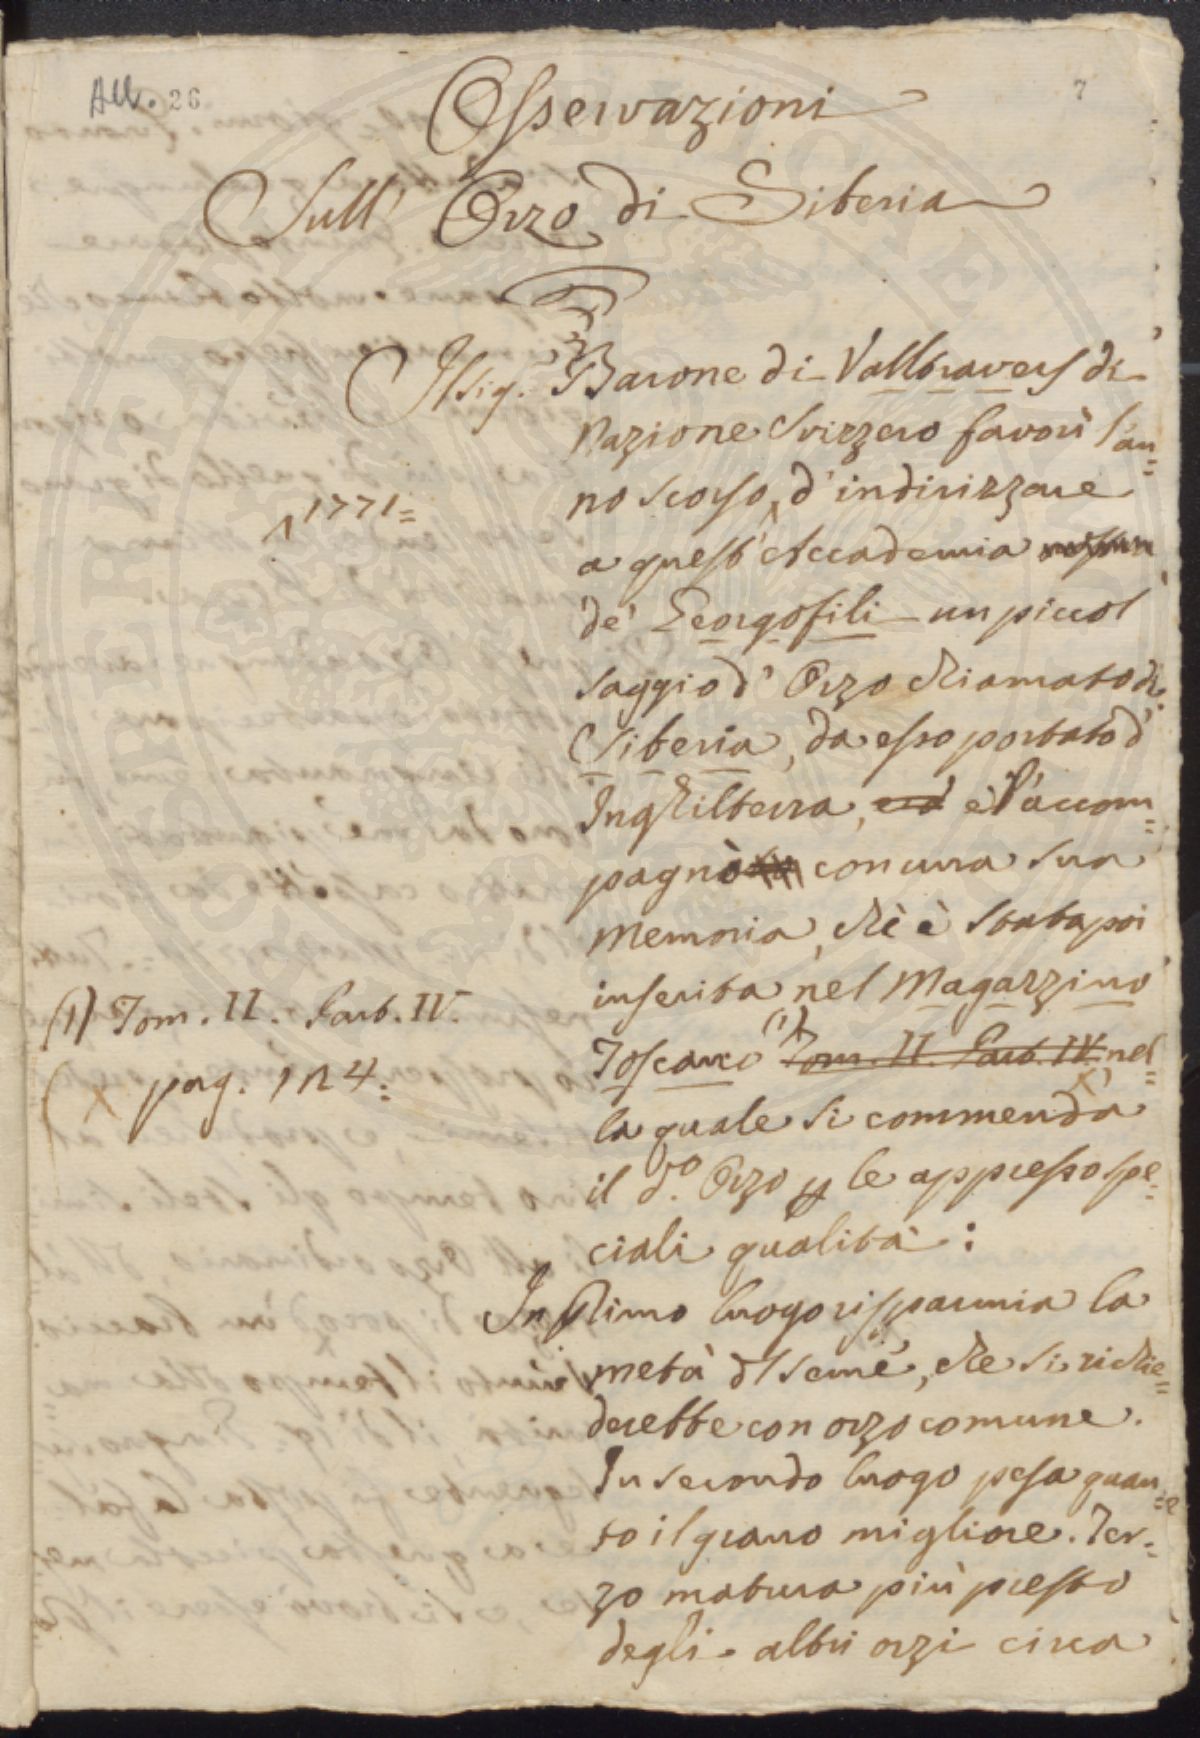 All. 26
7
Osservazioni
Sull' Orzo di Siberia
Il Sig. Barone di Valltravers di
Nazione Svizzero favorì l'an=
no scorso, d'indirizzare
^1771=
a quest'Accademia
de' Georgofili un piccol
saggio d'Orzo chiamato di
Siberia, da esso portato d'
Inghilterra, e l'accom=
pagnò con una sua
Memoria, che è stata poi
inserita nel Magazzino
Toscano (1) Tom. II. Part. IV. nel=
(1) Tom. II. Part. IV.
pag. 124.
la quale si commenda
il d.o Orzo p le appresso spe=
ciali qualità:
In primo luogo risparmia la
metà del seme, che si richie=
derebbe con orzo comune.
In secondo luogo pesa quan=
to il grano migliore. Ter=
zo matura più presto
degli altri orzi circa